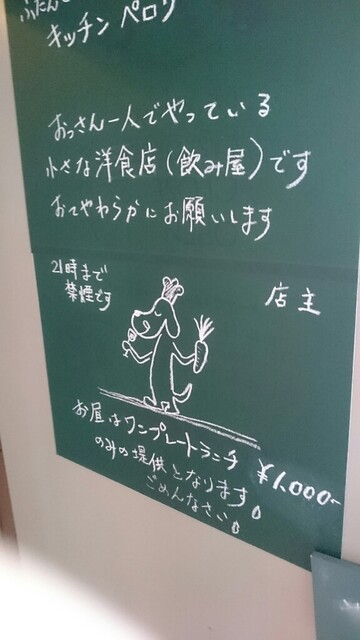 キッチン ペロリ
おっさん一人でやっている
小さな洋食店(飲み屋)です
おてやわらかにお願いします
21時まで
禁煙です
店主
お昼はワンプレートランチ
のみの提供となります。
ごめんなさい。
¥1,000-